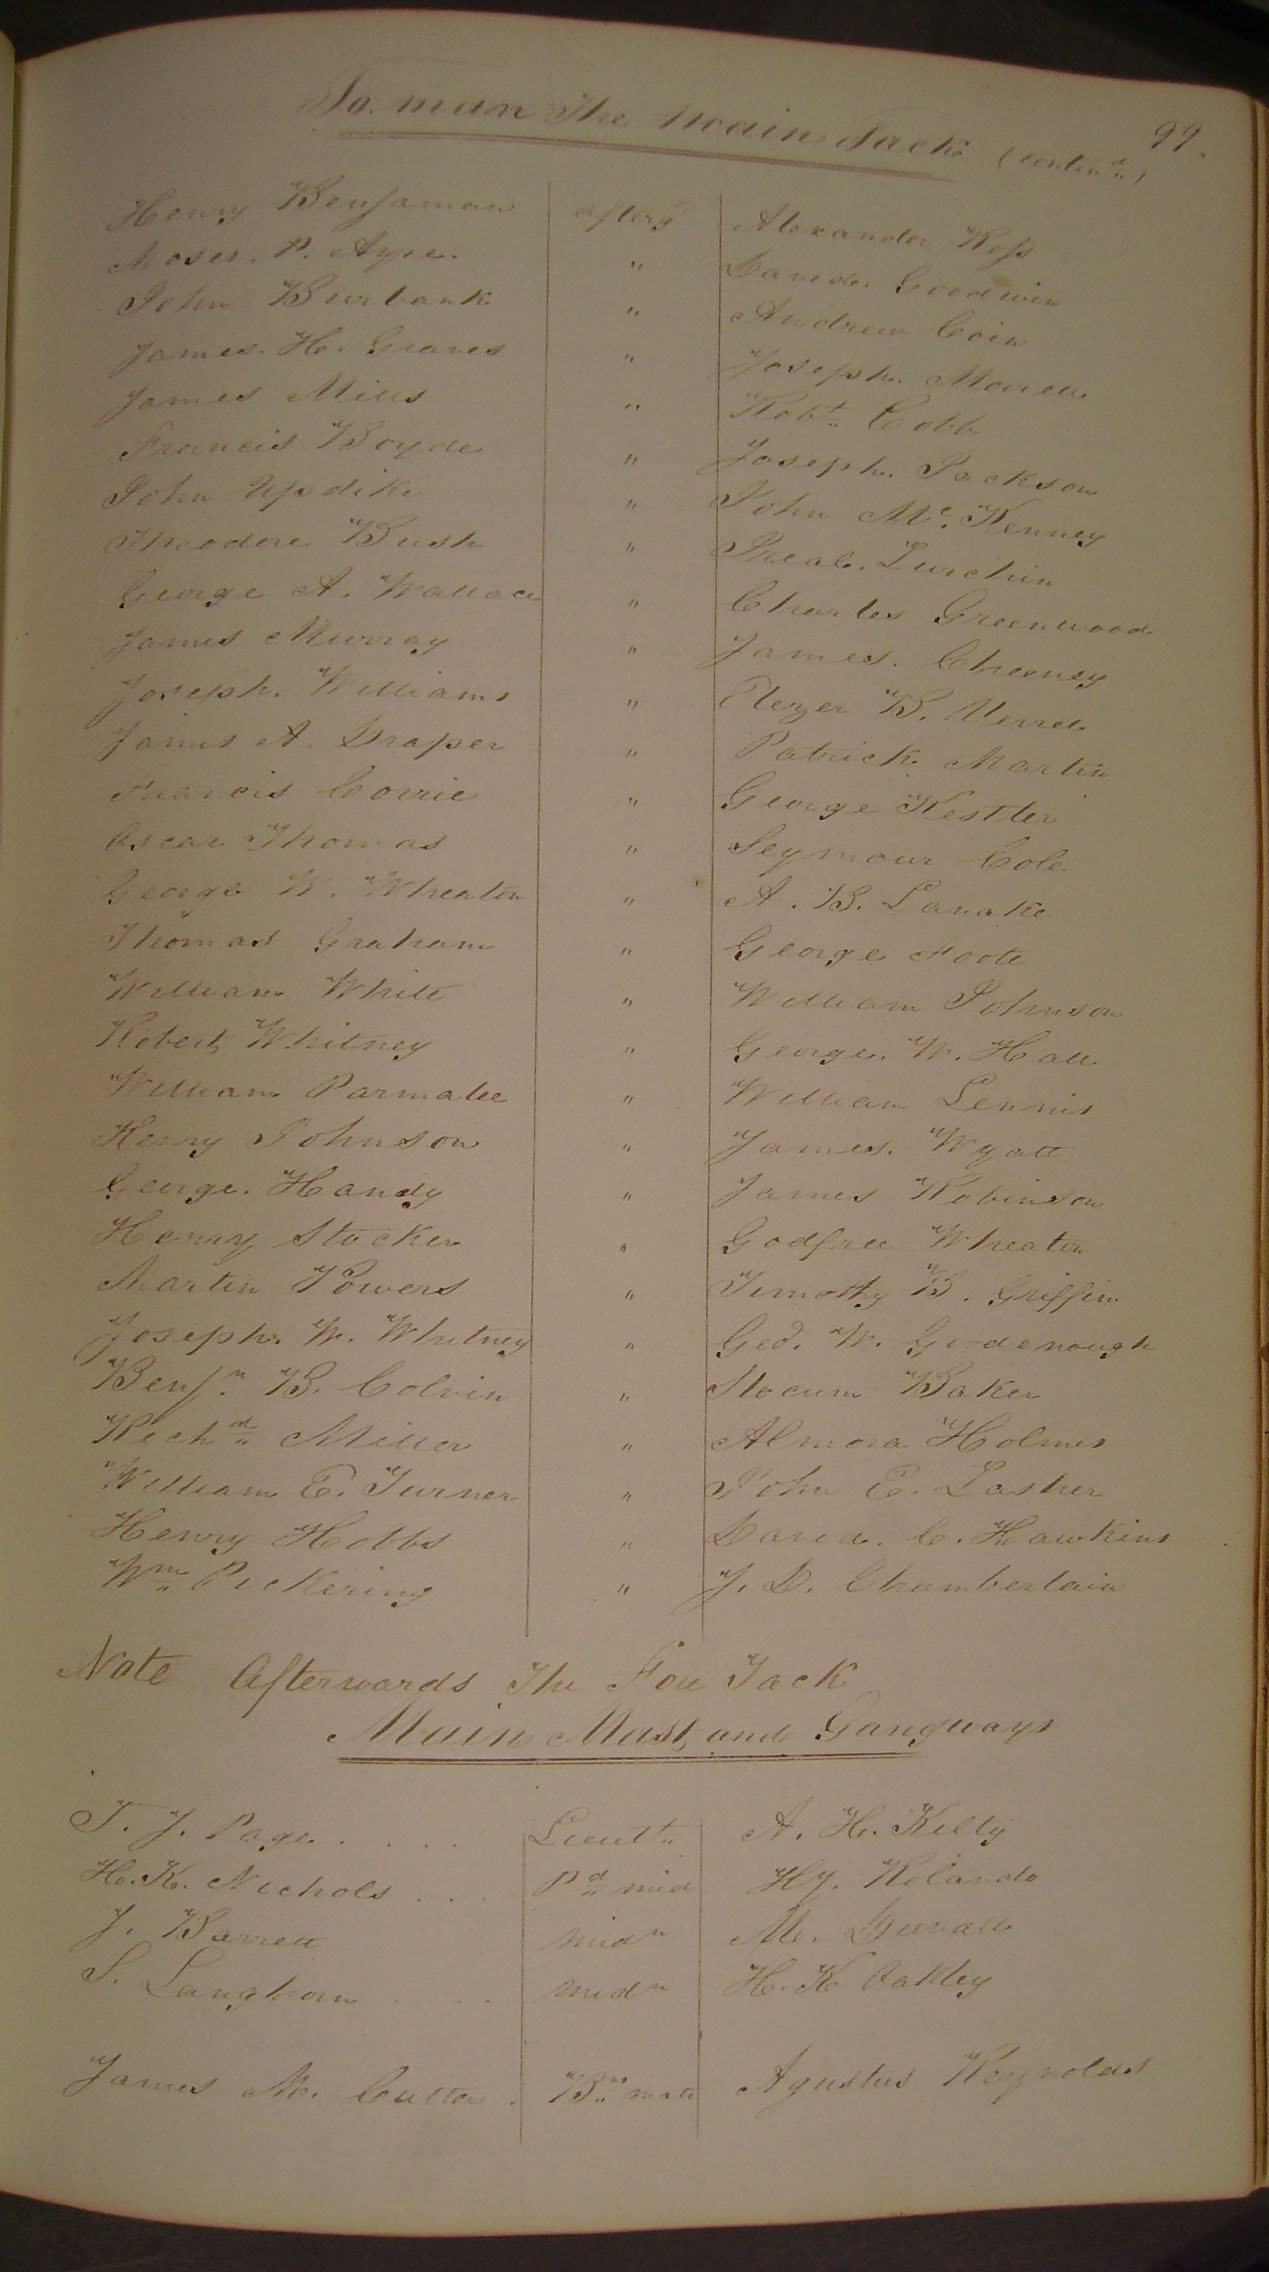 To man the Main Tack (contind) 99.
Henry Benjaman afterg Alexander Ross
Moses. P. Ayre. " David Goodwin
John Burbank " Andrew Coin
James. H. Graves " Joseph. Morrell
James Mills " Robt. Cobb
Francis Boyde " Joseph. Jackson
John Updike " John Mc. Kenney
Theodore Bush " Lurchin
George A. Wallace " Charles Greenwood
James Murray " James. Cheeney
Joseph. Williams " Elezer B. Merrell
James A. Draper " Patrick Martin
Francis Corrie " George Kestler
Oscar Thomas " Seymour Cole
George W. Wheaton " A. B. Lanake
Thomas Graham " George Foote
William White " William Johnson
Robert Whitney " George. W. Hall
William Parmalee " William Lennis
Henry Johnson " James. Wyatt
George. Handy " James Robinson
Henry Stocker " Godfree Wheaton
Martin Powers " Timothy B. Griffin
Joseph. W. Whitney " Geo. W. Goodenough
Benjn. B. Colvin " Slocum Baker
Richd. Miller " Almora Holmes
William E. Turner " John E. Lasher
Henry Hobbs " David. C. Hawkins
Wm Pickering " J. D. Chamberlain
Note Afterwards The Fore Tack
Main Mast, and Gangways
T. J. Page . . . . Lieutt. A. H. Kelty
H. K. Nichols . . . Pd mid Hy. Rolando
J. Barrett midn M. Duvall
S. Langhorn . . . midn H. K Oakley
James M. Cutter . Bn mate Agustus Reynolds